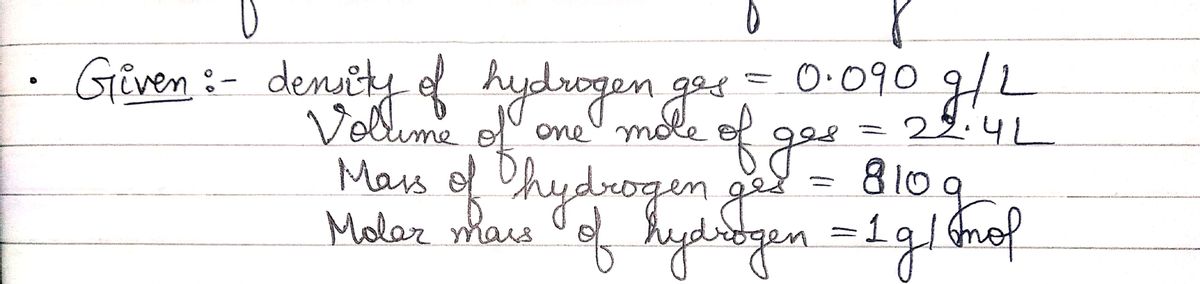 • Given :- density of hydrogen gas = 0.090 g/L
Volume of one mole of gas = 22.4L
Mass of hydrogen gas = 810 g
Molar mass of hydrogen = 1 g/mol